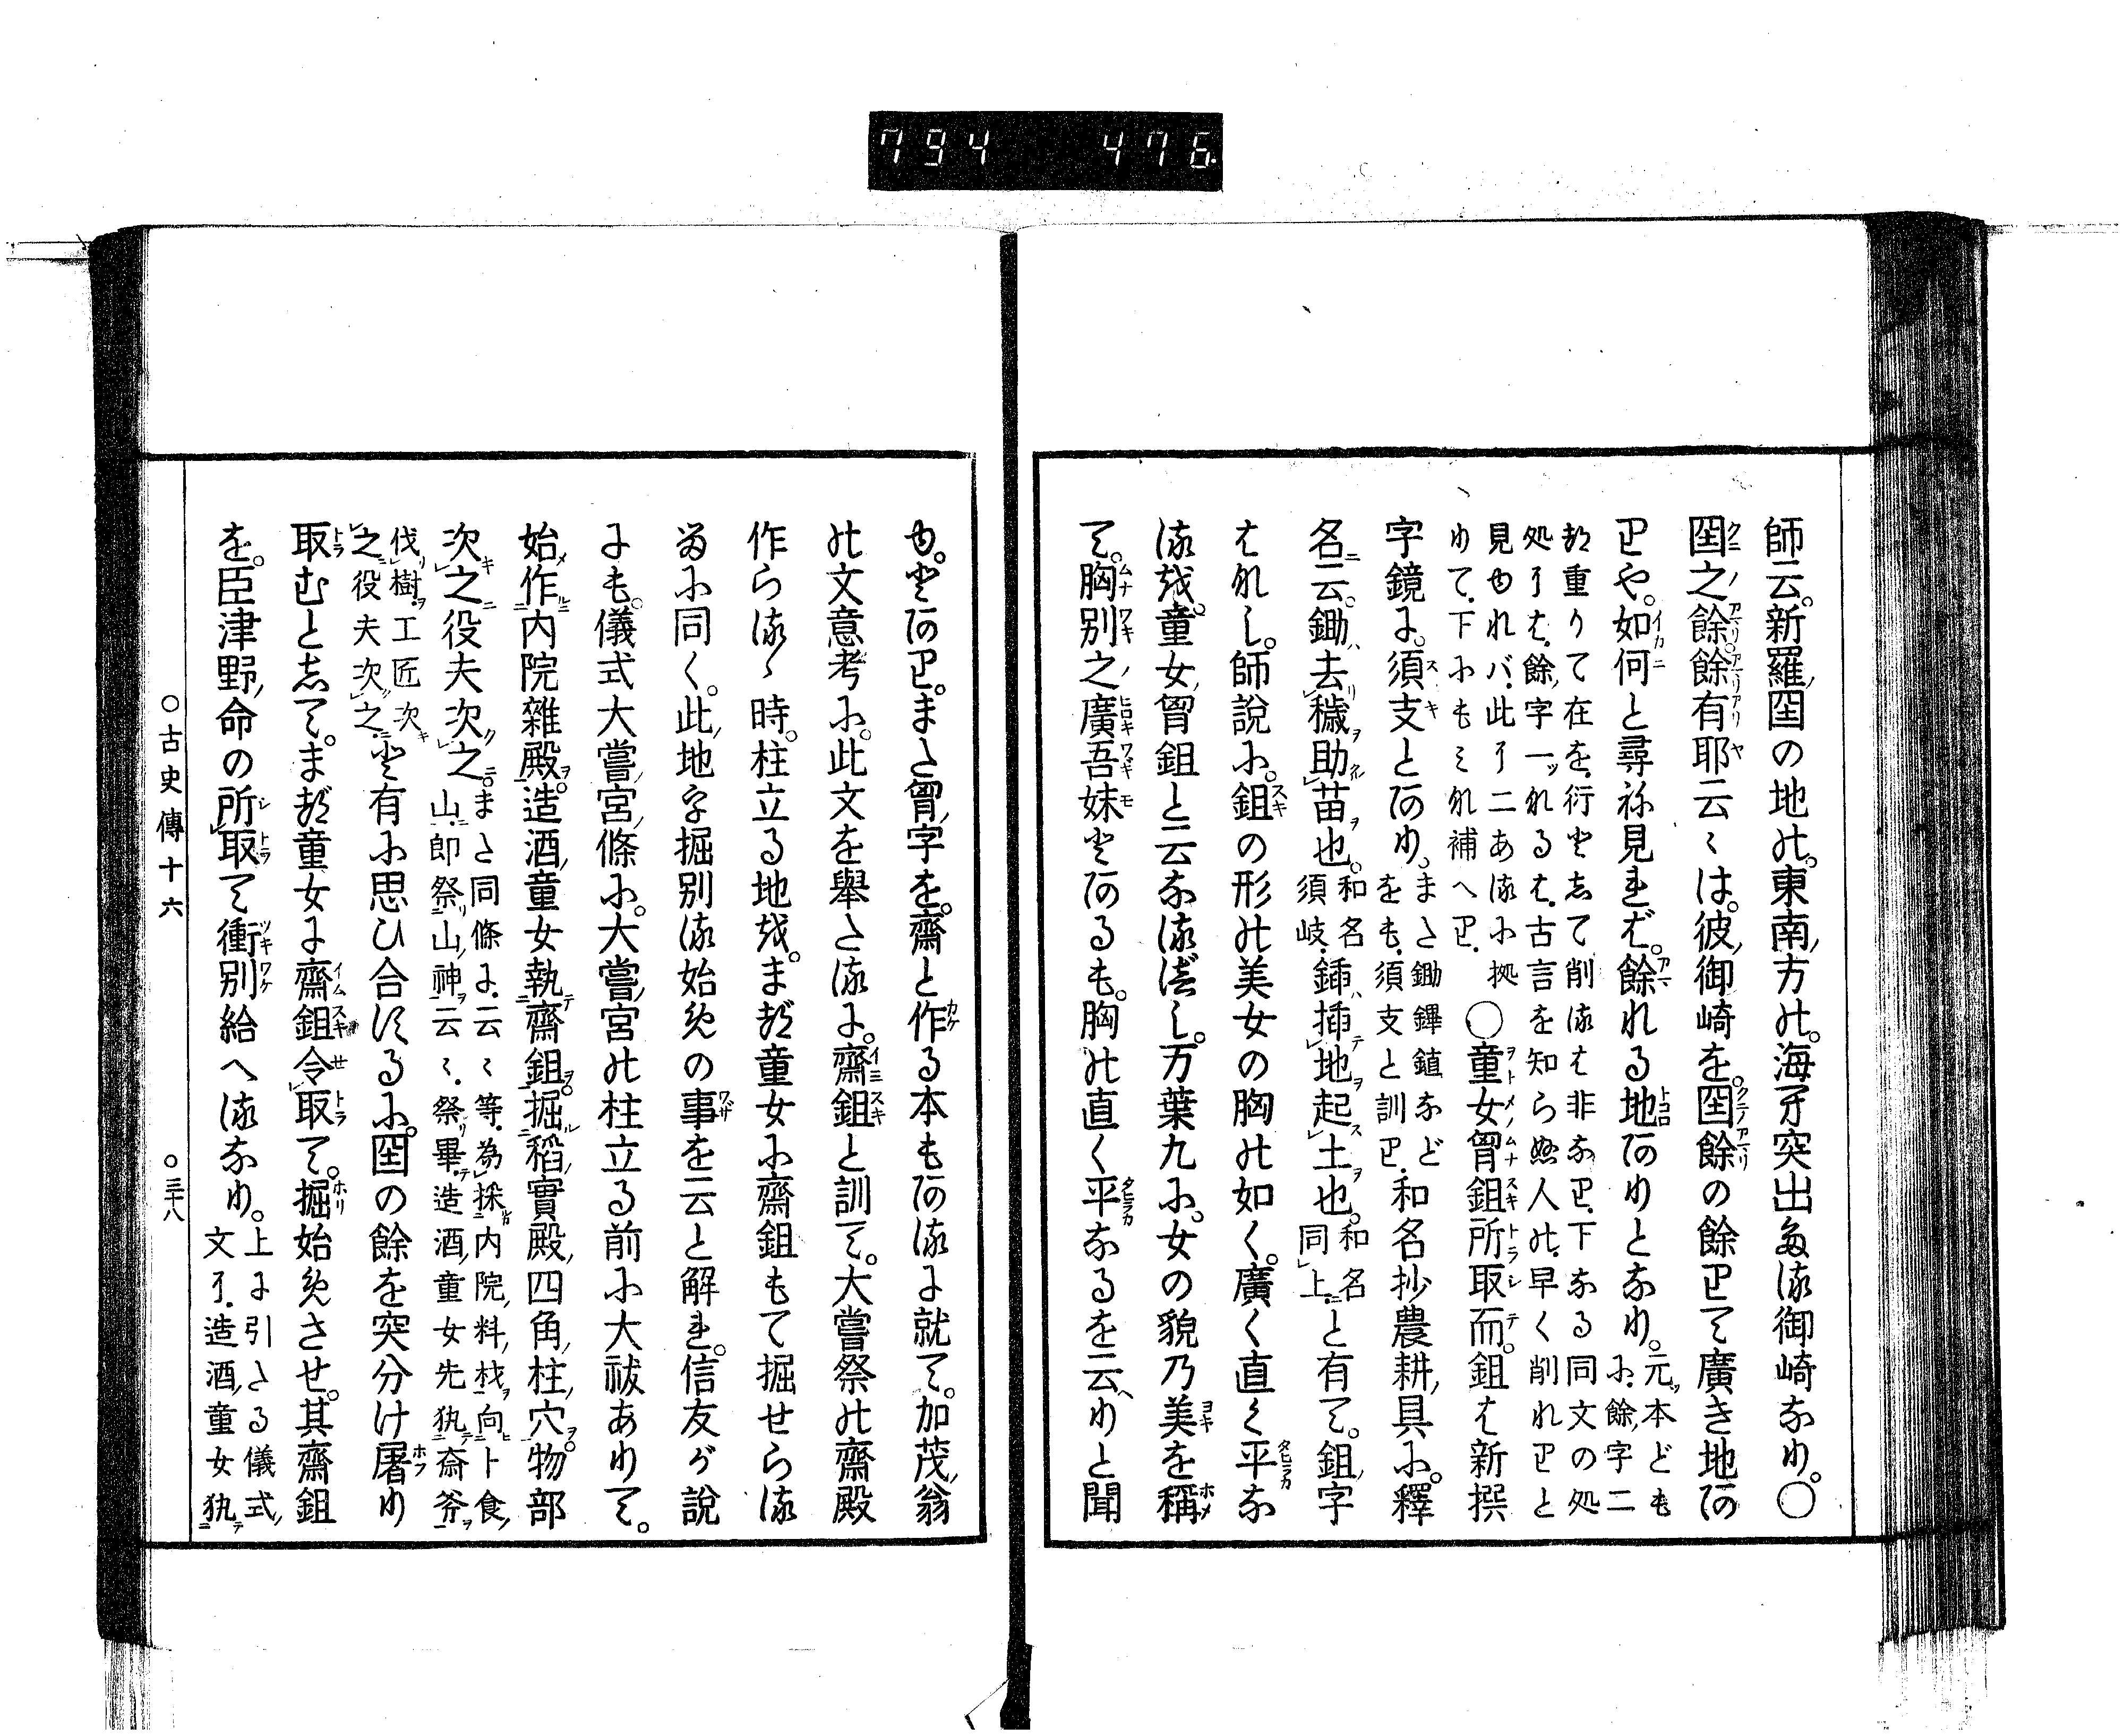 794 476
師云。新羅ノ国の地の。東南ノ方の。海牙突出たる御崎なり。〇
国之餘餘有耶云々は。彼ノ御崎を。国餘の餘りて廣き地あ
りや。如何と尋ね見れば。餘れる地ありとなり。元ツ本どもに、餘ノ字二
ツ重りて在を、衍として削るは非なり、下なる同文の処
処には、餘ノ字一ツなるは、古言を知らぬ人の、早く削れりと
見ゆれバ、此に二あるに拠
りて、下にもみな補へり、〇童女胷鉏所取而。鉏は新撰
字鏡に。須支とあり。また鋤鏎鎮などをも、須支と訓り、和名抄農耕ノ具に。釋
名云。鋤ハ去穢助苗也。和名須岐、鍤ハ插地起土也。和名同上と有て。鉏ノ字
はなし。師説に。鉏の形の美女の胸の如く。廣く直く平な
る故。童女ノ胷鉏と云なるべし。万葉九に。女の貌乃美を稱
て。胸別之廣吾妹とあるも。胸の直く平なるを云へりと聞
ゆ。とあり。また胷ノ字を。齋と作る本もあるに就て。加茂ノ翁
の文意考に。此文を舉たるに。齋鉏と訓て。大嘗祭の齋殿
作らるゝ時。柱立る地を。まづ童女に齋鉏もて掘せらる
るに同く。此ノ地を掘別る始めの事を云と解れ。信友が說
にも。儀式大嘗ノ宮ノ條に。大嘗ノ宮の柱立る前に大祓ありて。
始作内院雜殿。造酒ノ童女執齋鉏。掘稻ノ實殿ノ四角ノ柱ノ穴。物部
次之役夫次之。また同條に、云々等、為採内院ノ料ノ材向卜食ノ山、即祭山ノ神云々、祭畢、造酒ノ童女先執斎斧
伐樹、工匠次之役夫次之、と有に思ひ合するに。国の餘を突分け屠り
取むとして。まづ童女に齋鉏令取て。掘始めさせ。其齋鉏
を。臣津野ノ命の所取て衝別給へるなり。上に引たる儀式ノ文に、造酒ノ童女執
〇古史傳十六 〇三十八